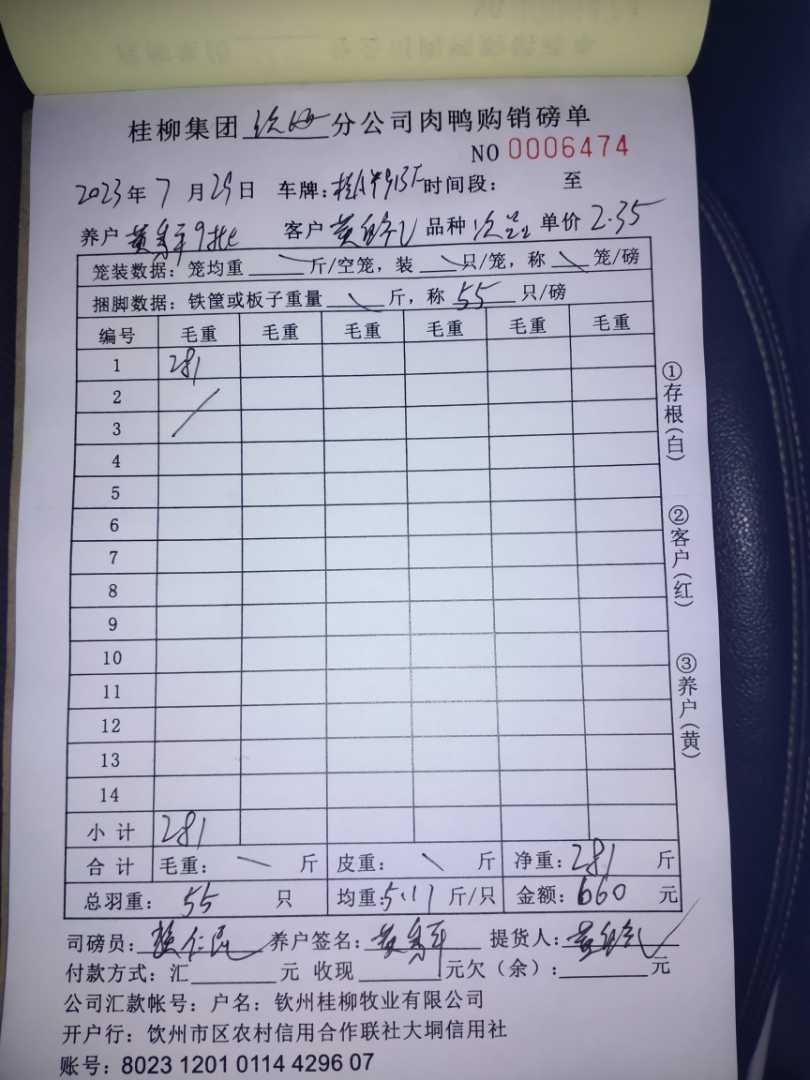 桂柳集团 分公司肉鸭购销磅单
NO 0006474
2023年7月29日 车牌: 时间段: 至
养户 黄秀平9批 客户 黄 品种 次品 单价 2.35
笼装数据: 笼均重 斤/空笼, 装 只/笼, 称 笼/磅
捆脚数据: 铁筐或板子重量 斤, 称 55 只/磅
编号 毛重 毛重 毛重 毛重 毛重 毛重
1 281
2
3
4
5
6
7
8
9
10
11
12
13
14
小计 281
合计 毛重: 斤 皮重: 斤 净重: 281 斤
总羽重: 55 只 均重: 5.11 斤/只 金额: 660 元
司磅员: 养户签名: 黄秀平 提货人: 黄
付款方式: 汇 元 收现 元欠(余): 元
公司汇款帐号: 户名: 钦州桂柳牧业有限公司
开户行: 饮州市区农村信用合作联社大垌信用社
账号: 8023 1201 0114 4296 07
①存根(白)
②客户(红)
③养户(黄)